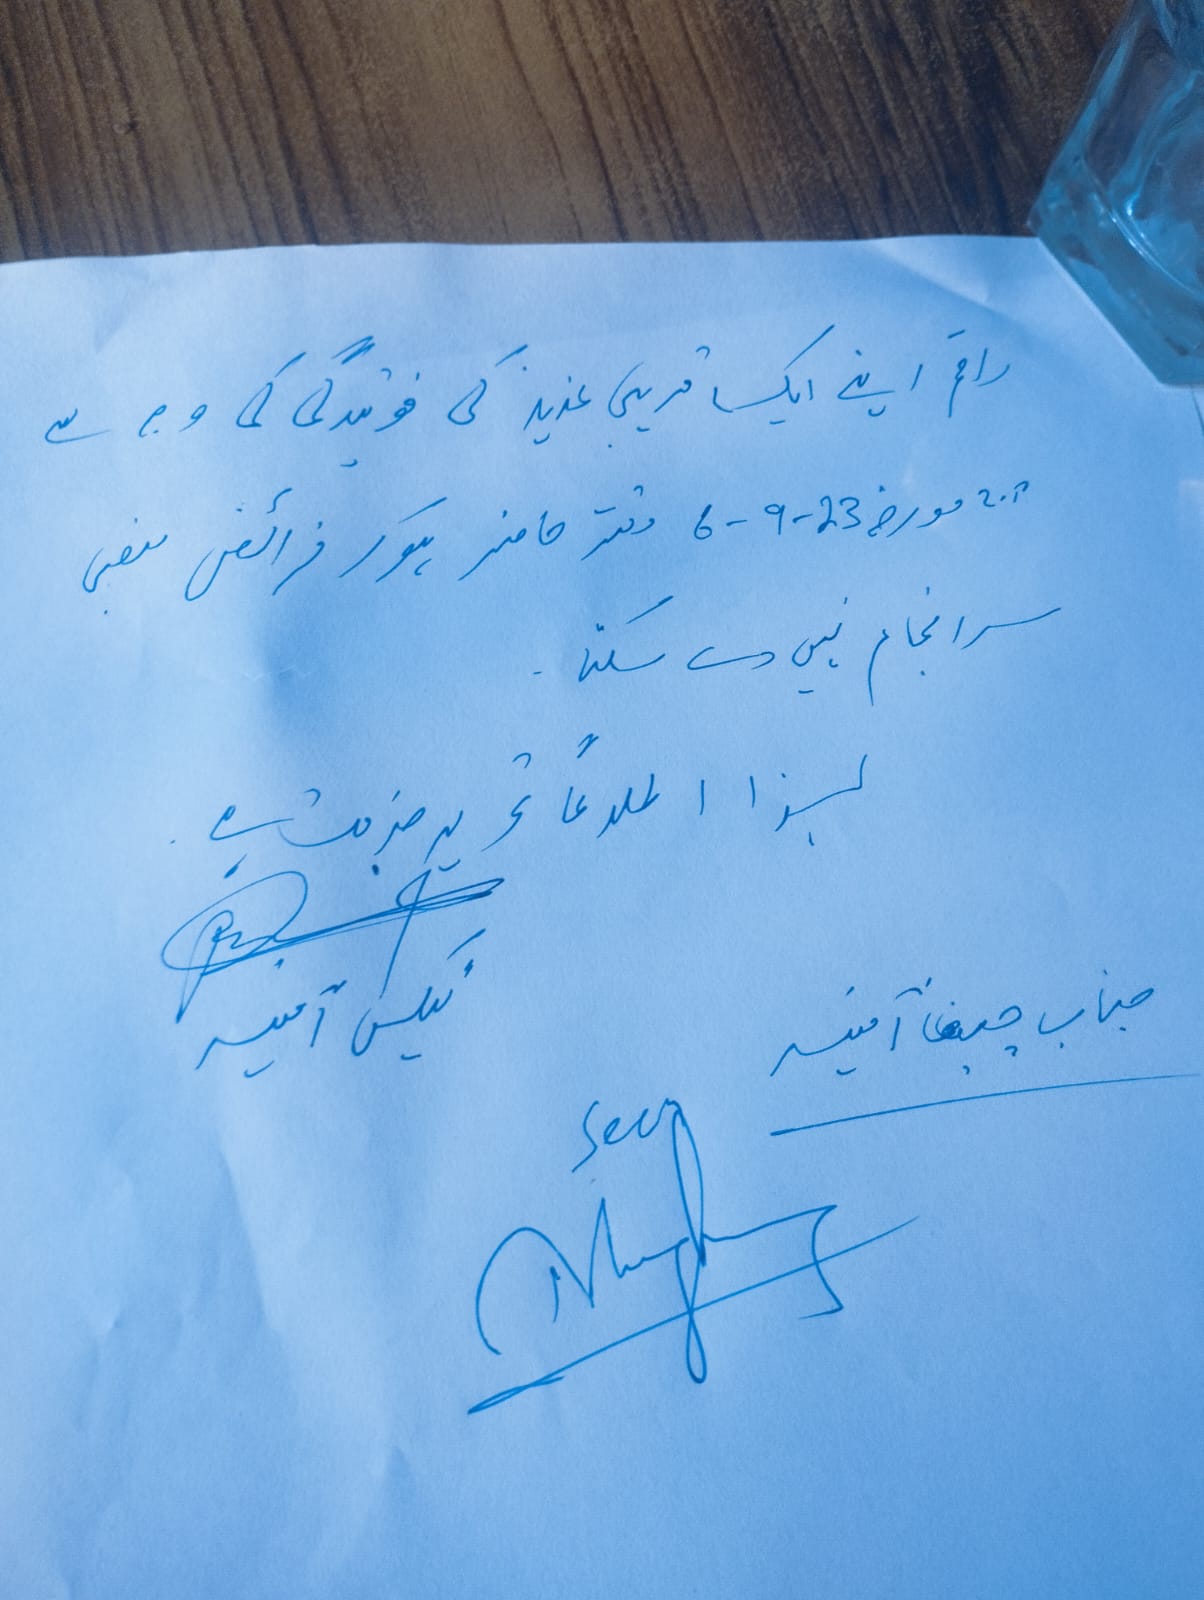 راقم اپنے ایک قریبی عزیز کی فوتیدگی کی وجہ سے
مورخہ 23-9-6 دفتر حاضر ہوکر فرائض منصبی
سرانجام نہیں دے سکتا۔
لہذا اطلاعاً تحریر خدمت ہے۔
ٹیکس آفیسر
جناب چیف آفیسر
Seen